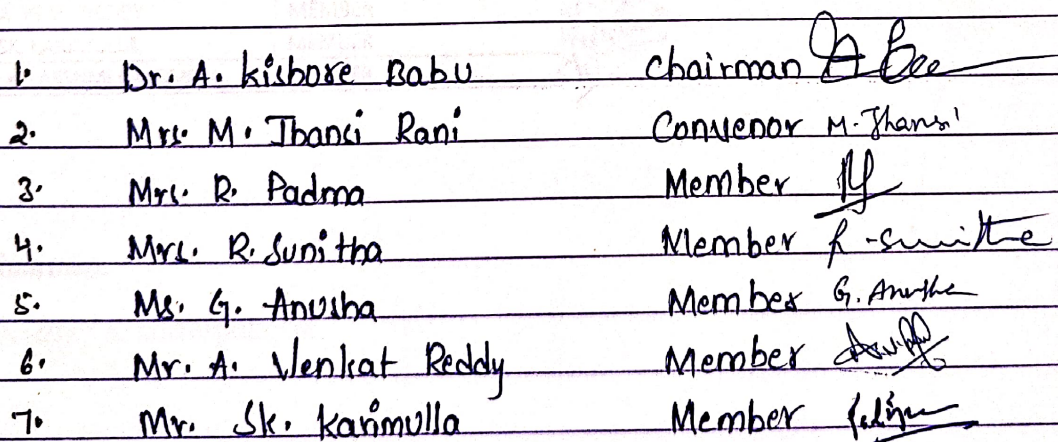 1. Dr. A. Kishore Babu Chairman
2. Mrs. M. Jhansi Rani Convenor M. Jhansi
3. Mrs. R. Padma Member
4. Mrs. R. Sunitha Member R. Sunitha
5. Ms. G. Anusha Member G. Anusha
6. Mr. A. Venkat Reddy Member
7. Mr. Sk. Karimulla Member